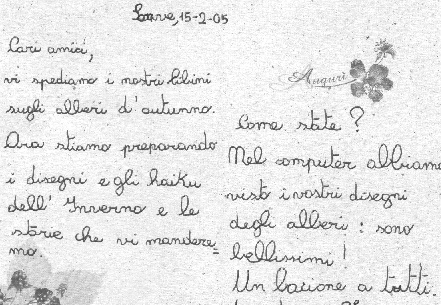 Soave, 15-2-05
Cari amici,
vi spediamo i nostri libini
sugli alberi d'autunno.
Ora stiamo preparando
i disegni e gli haiku
dell' Inverno e le
storie che vi mandere=
mo.
Auguri
Come state?
Nel computer abbiamo
visto i vostri disegni
degli alberi: sono
bellissimi!
Un bacione a tutti.